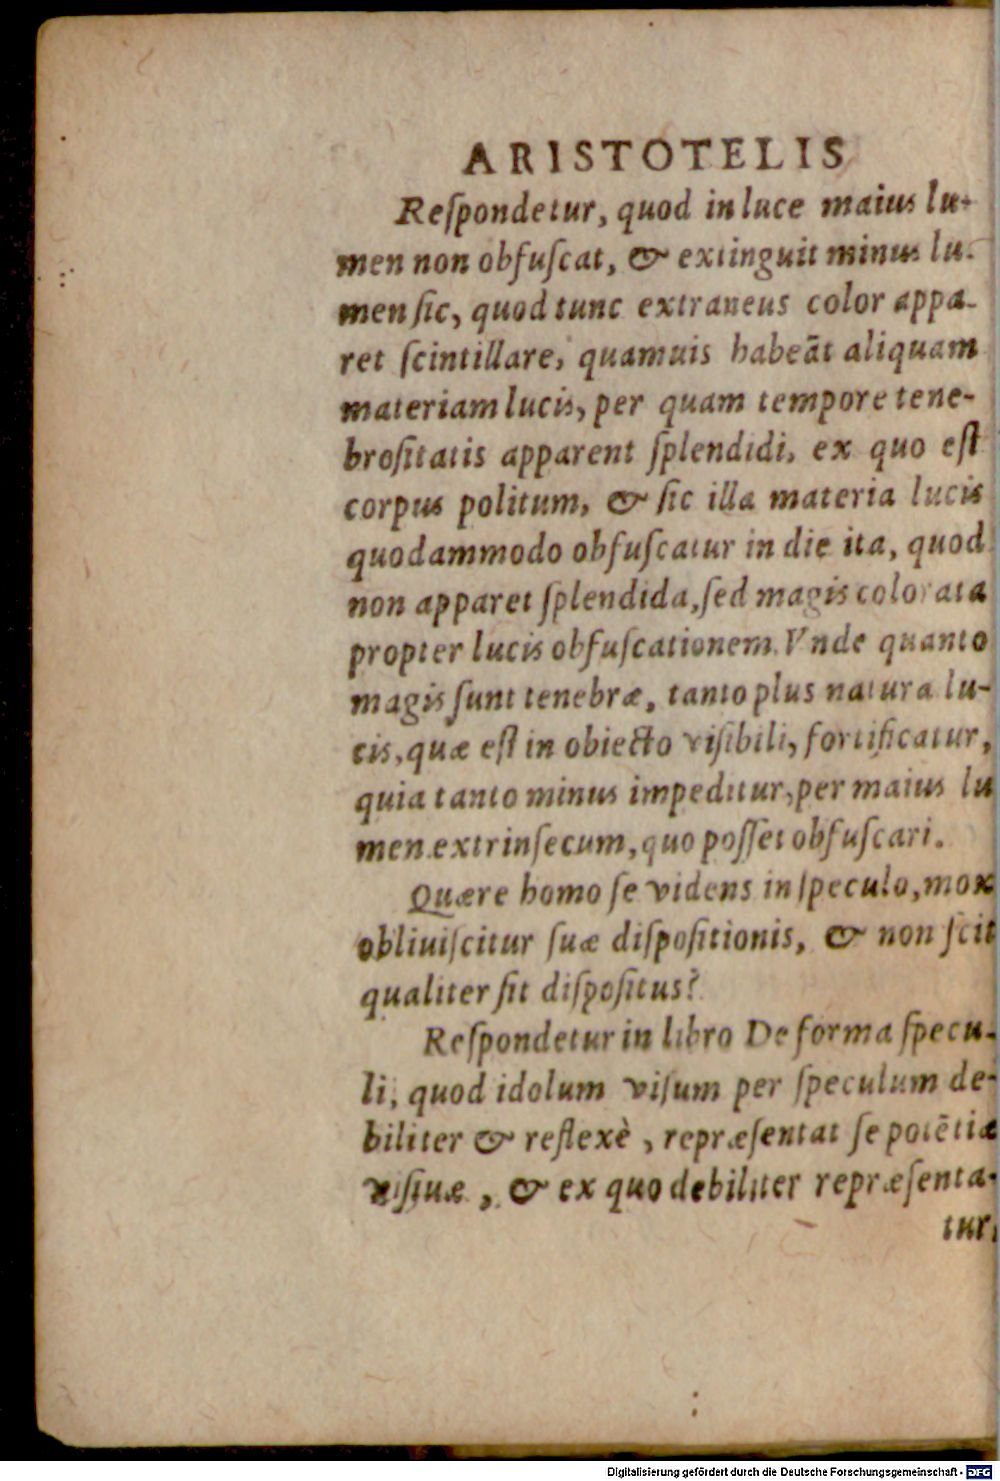 ARISTOTELIS
Reſpondetur, quod in luce maius lu-
men non obfuſcat, & extinguit minus lu-
men ſic, quod tunc extraneus color appa-
ret ſcintillare, quamuis habeãt aliquam
materiam lucis, per quam tempore tene-
broſitatis apparent ſplendidi, ex quo eſt
corpus politum, & ſic illa materia lucis
quodammodo obfuſcatur in die ita, quod
non apparet ſplendida, ſed magis colorata
propter lucis obfuſcationem. Vnde quanto
magis ſunt tenebræ, tanto plus natura lu-
cis, quæ eſt in obiecto viſibili, fortificatur,
quia tanto minus impeditur, per maius lu
men extrinſecum, quo poſſet obfuſcari.
Quære homo ſe videns in ſpeculo, mox
obliuiſcitur ſuæ diſpoſitionis, & non ſcit
qualiter ſit diſpoſitus?
Reſpondetur in libro De forma ſpecu-
li, quod idolum viſum per ſpeculum de-
biliter & reflexè, repræſentat ſe potẽtiæ
viſiuæ, & ex quo debiliter repræſenta-
tur,
Digitalisierung gefördert durch die Deutsche Forschungsgemeinschaft - DFG